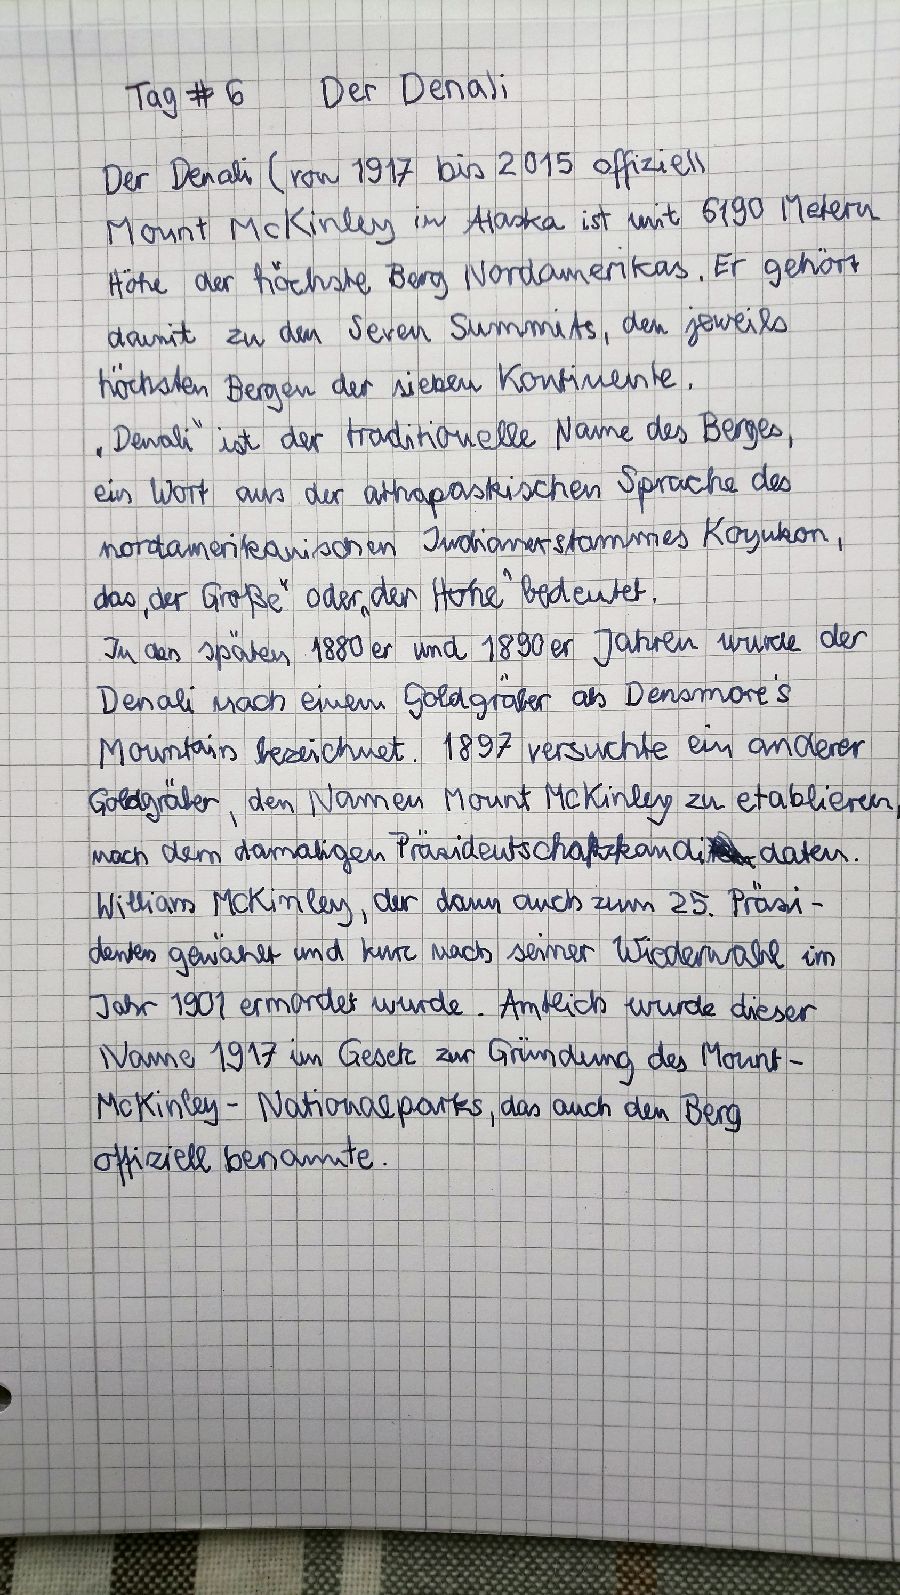 Tag # 6 Der Denali
Der Denali (von 1917 bis 2015 offiziell
Mount McKinley in Alaska ist mit 6190 Metern
Höhe der höchste Berg Nordamerikas. Er gehört
damit zu den Seven Summits, den jeweils
höchsten Bergen der sieben Kontinente.
„Denali“ ist der traditionelle Name des Berges,
ein Wort aus der athapaskischen Sprache des
nordamerikanischen Indianerstammes Koyukon,
das „der Große“ oder „der Hohe“ bedeutet.
In den späten 1880er und 1890er Jahren wurde der
Denali nach einem Goldgräber als Densmore's
Mountain bezeichnet. 1897 versuchte ein anderer
Goldgräber, den Namen Mount McKinley zu etablieren,
nach dem damaligen Präsidentschaftskandidaten.
William McKinley, der dann auch zum 25. Präsi-
denten gewählt und kurz nach seiner Wiederwahl im
Jahr 1901 ermordet wurde. Amtlich wurde dieser
Name 1917 im Gesetz zur Gründung des Mount-
McKinley-Nationalparks, das auch den Berg
offiziell benannte.